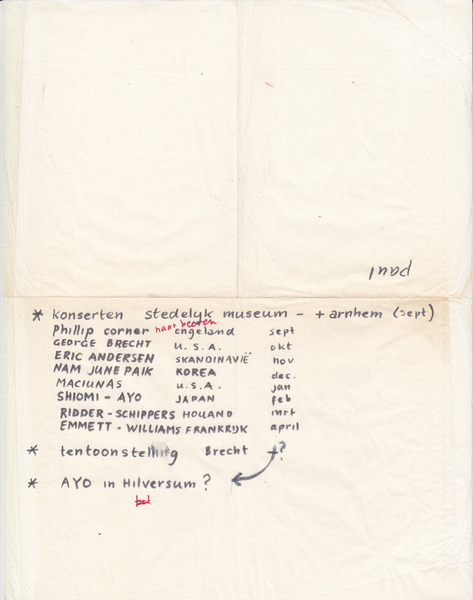 paul
* konserten stedelyk museum - + arnhem (sept)
Phillip corner engeland sept
GEORGE BRECHT U.S.A. okt
ERIC ANDERSEN SKANDINAVIË nov
NAM JUNE PAIK KOREA dec.
MACIUNAS U.S.A. jan
SHIOMI - AYO JAPAN feb
RIDDER - SCHIPPERS HOLLAND mrt
EMMETT - WILLIAMS FRANKRIJK april
* tentoonstelling Brecht +?
* AYO in Hilversum?